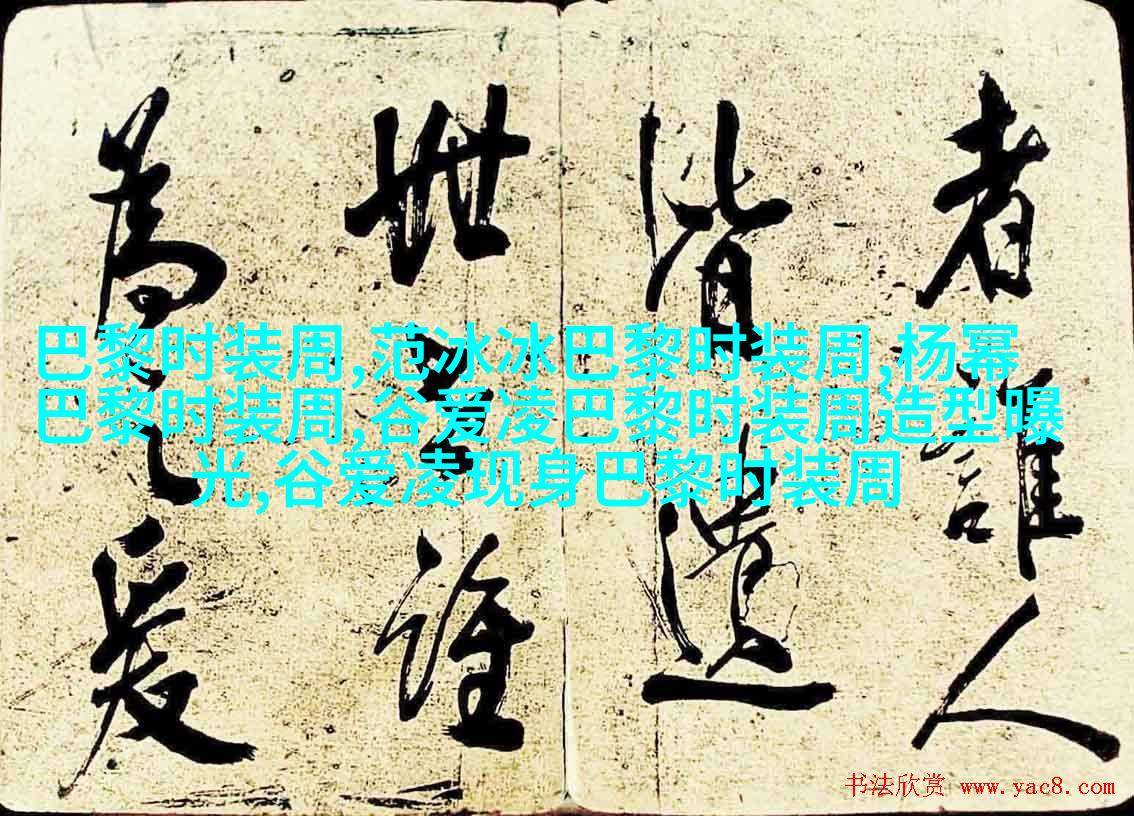 巴黎时装周,范冰冰巴黎时装周,杨幂
巴黎时装周,谷爱凌巴黎时装周造型曝
光,谷爱凌现身巴黎时装周
者誰人
皆遺
世誰
為之爰
书法欣赏 www.yac8.com